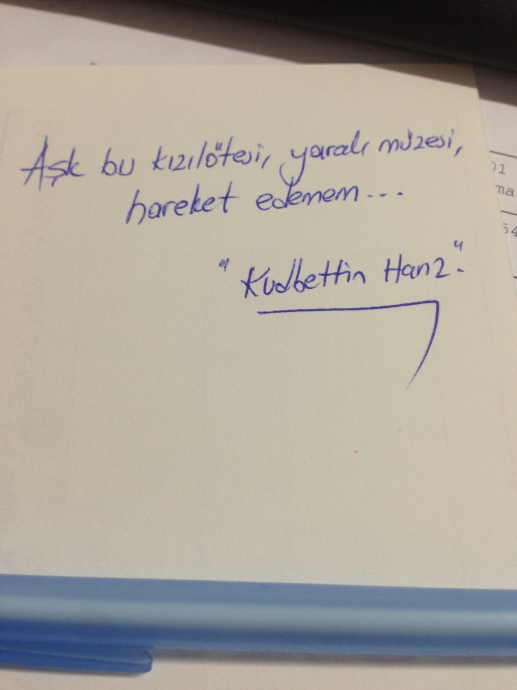 Aşk bu kızılötesi, yaralı müzesi,
hareket edemem...
"Kudbettin Hanz".
01
ma
54